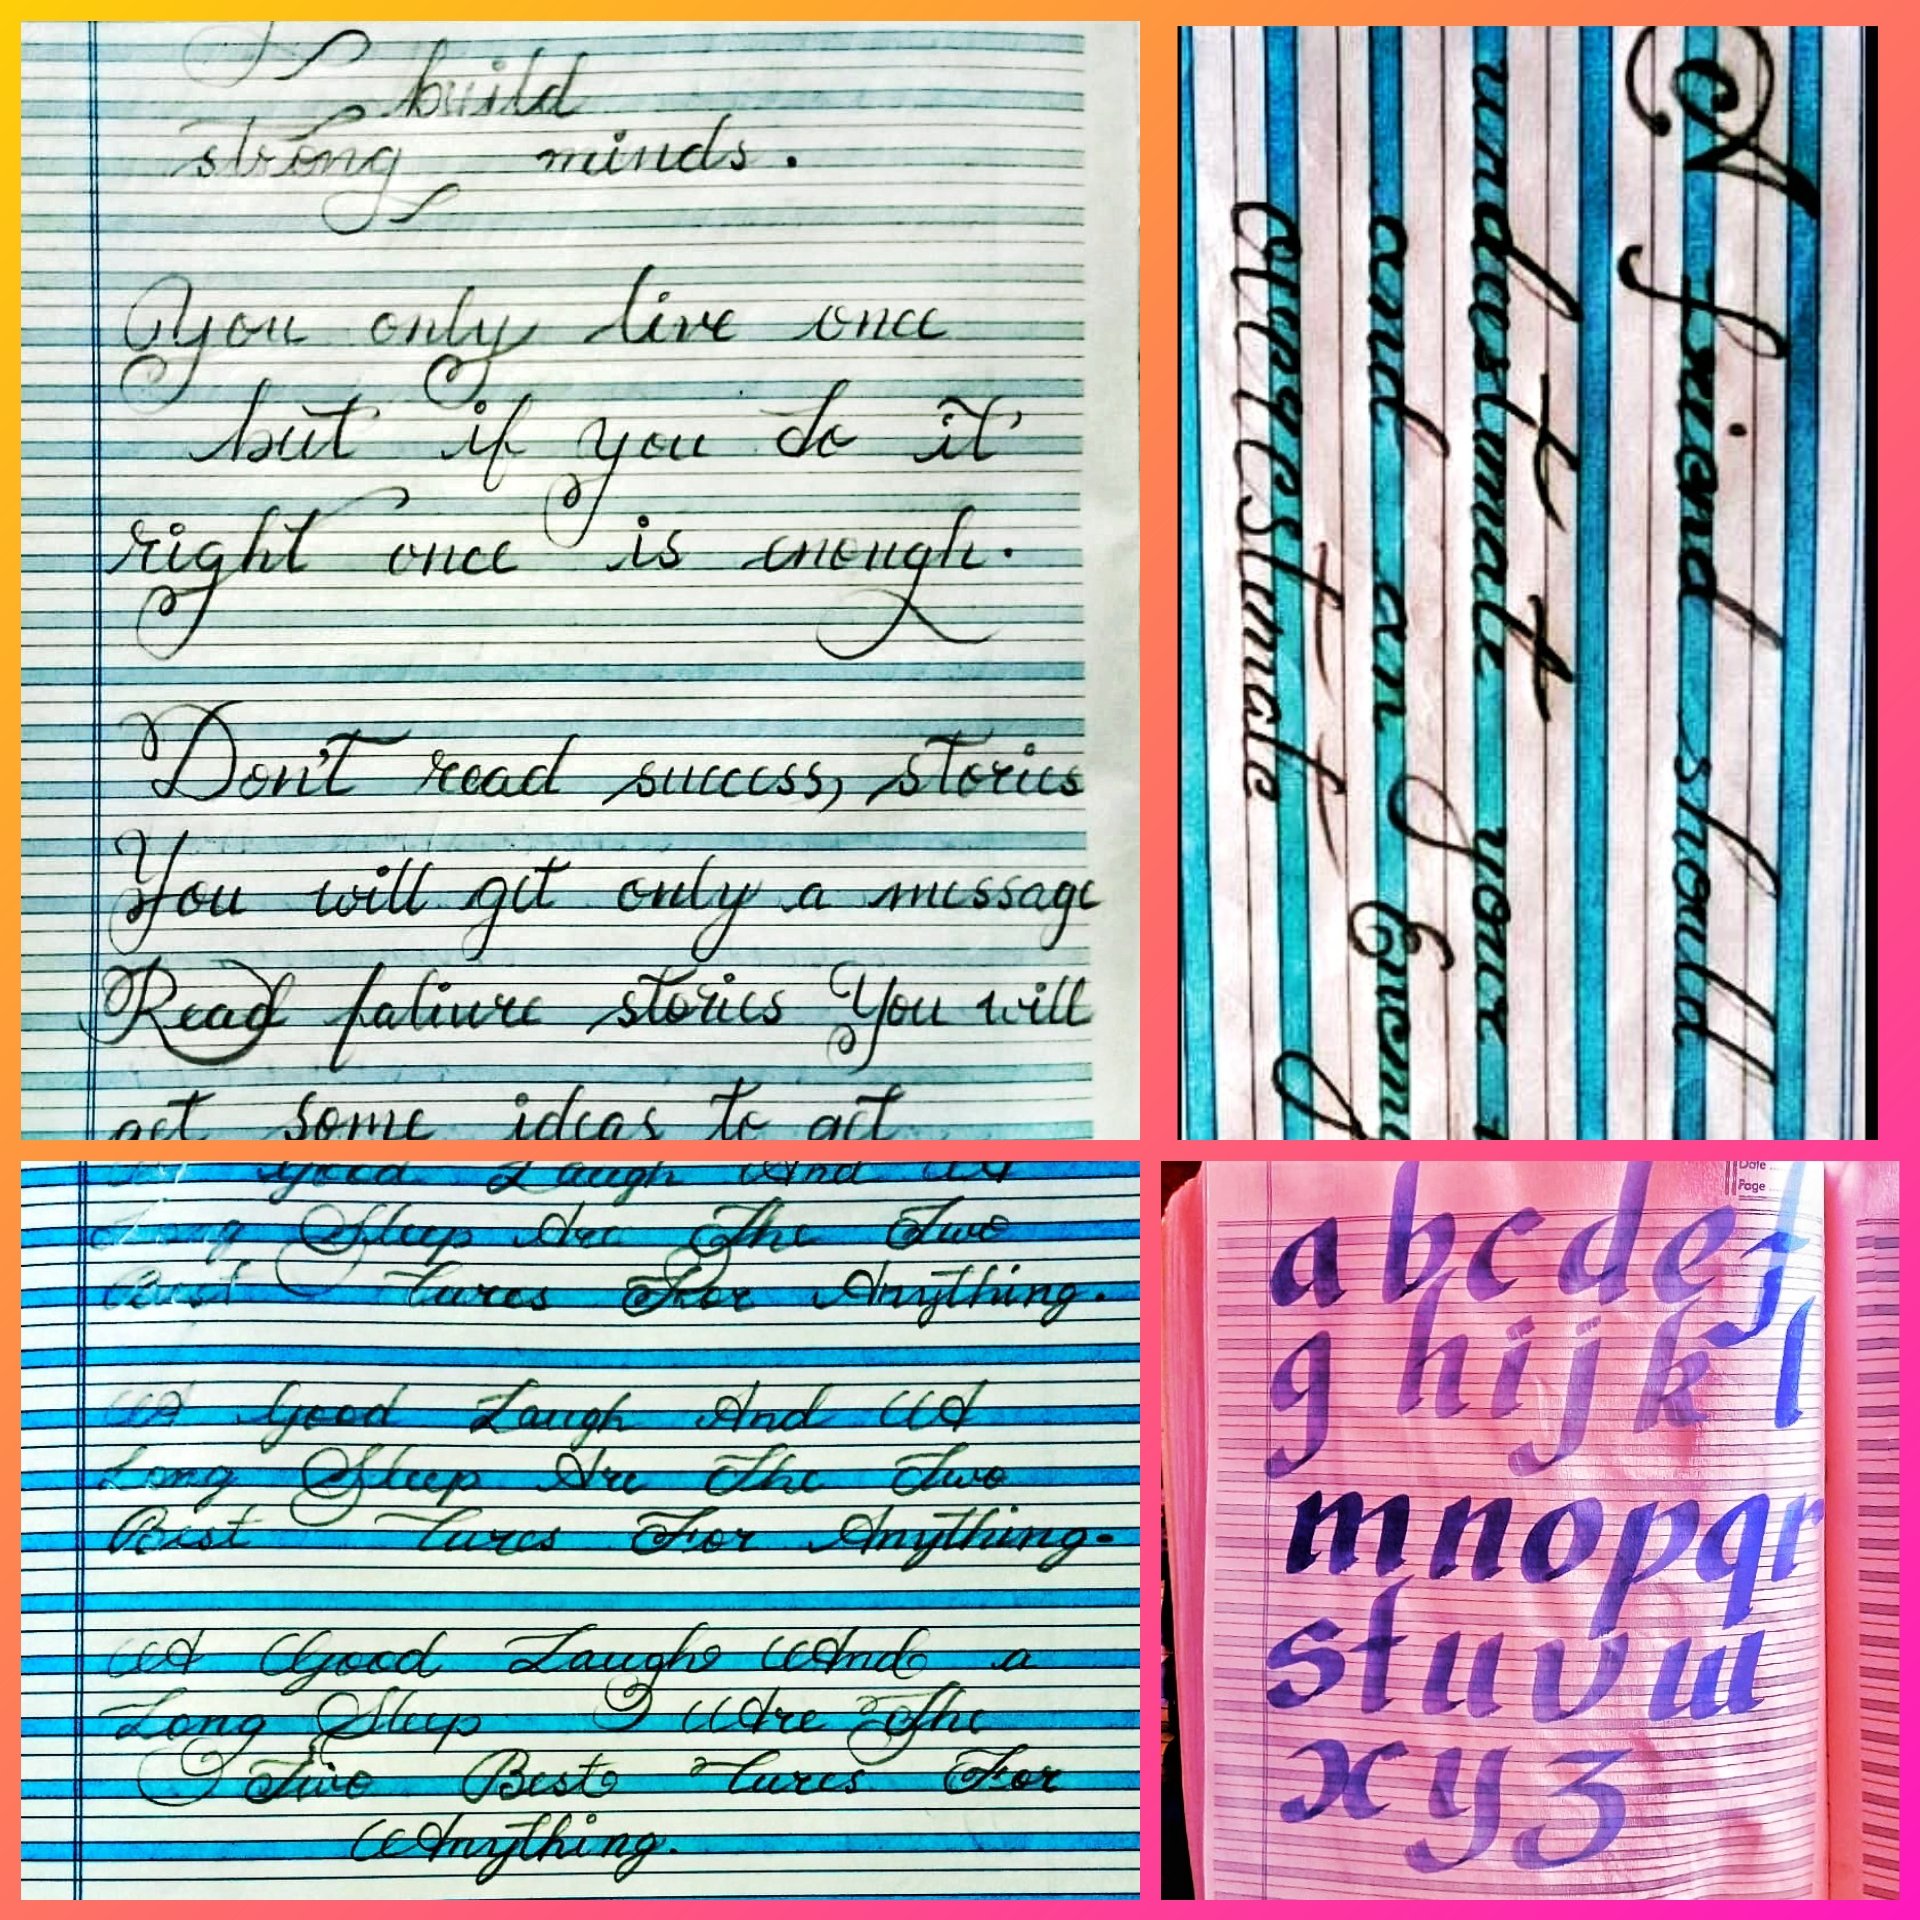 build
strong minds.
You only live once
but if you do it
right once is enough.
Don't read success, stories
You will get only a message
Read faliure stories You will
get some ideas to get
A friend should
undrestimate your
and an Enemy
overestimate
A Good Laugh And A
Long Sleep Are The Two
Best Cures For Anything.
A Good Laugh And A
Long Sleep Are The Two
Best Cures For Anything.
A Good Laugh And a
Long Sleep Are The
Two Best Cures For
Anything.
Date
Page
a b c d e f
g h i j k l
m n o p q r
s t u v w
x y z